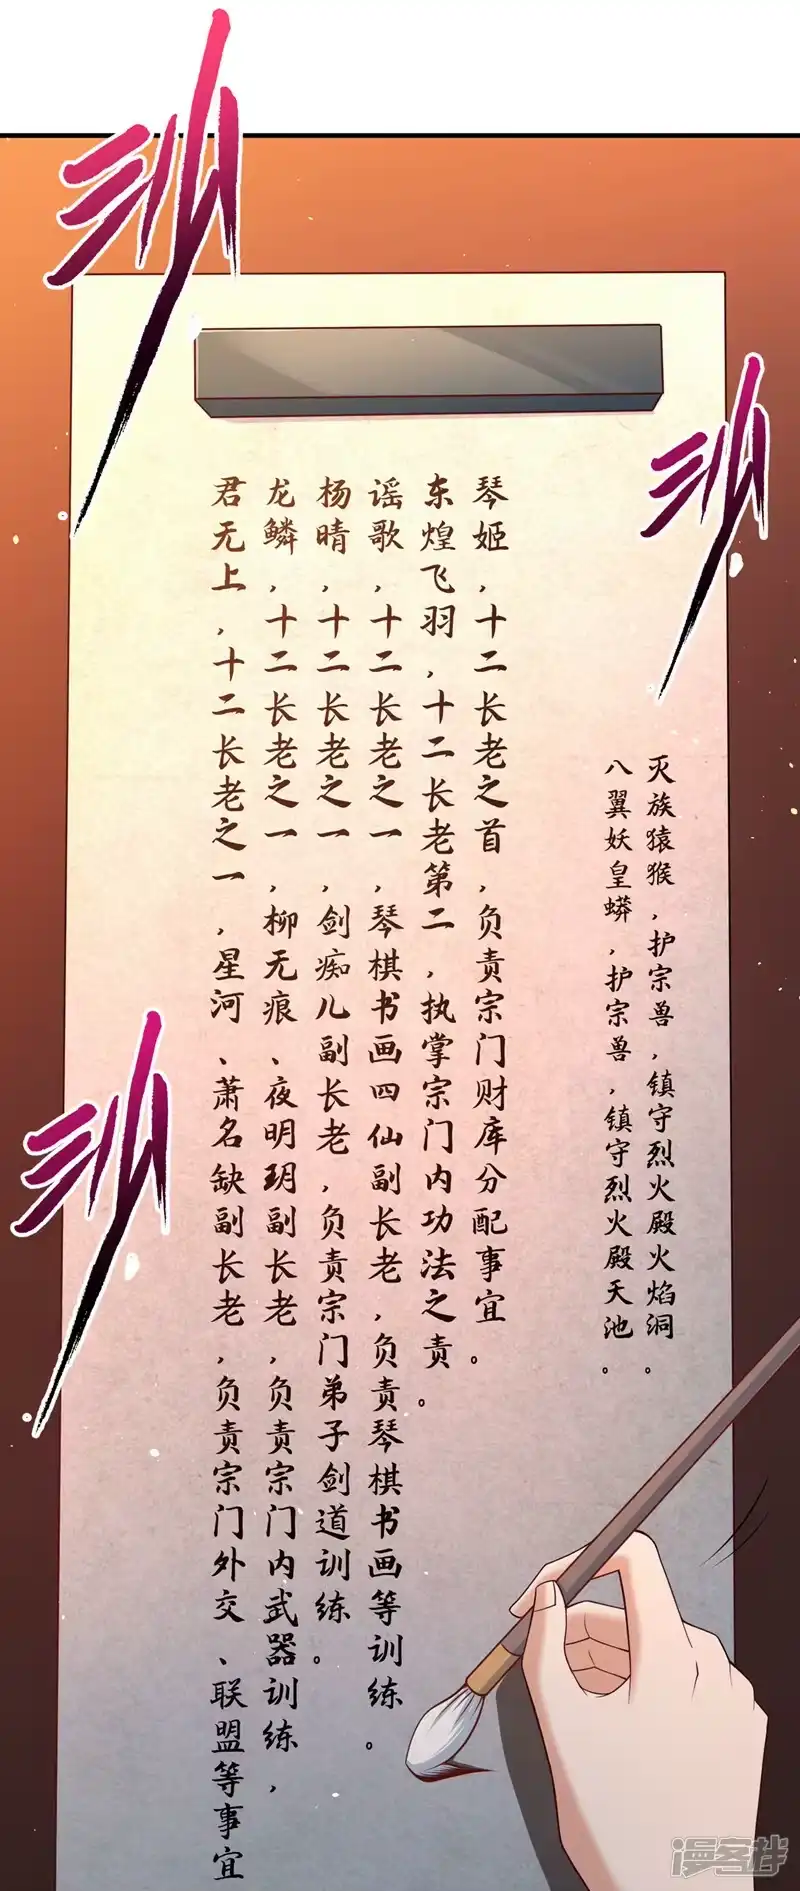 灭族猿猴，护宗兽，镇守烈火殿火焰洞。
八翼妖皇蟒，护宗兽，镇守烈火殿天池。
琴姬，十二长老之首，负责宗门财库分配事宜。
东煌飞羽，十二长老第二，执掌宗门内功法之责。
谣歌，十二长老之一，琴棋书画四仙副长老，负责琴棋书画等训练。
杨晴，十二长老之一，剑痴儿副长老，负责宗门弟子剑道训练。
龙鳞，十二长老之一，柳无痕、夜明玥副长老，负责宗门内武器训练，
君无上，十二长老之一，星河、萧名缺副长老，负责宗门外交、联盟等事宜
漫客栈